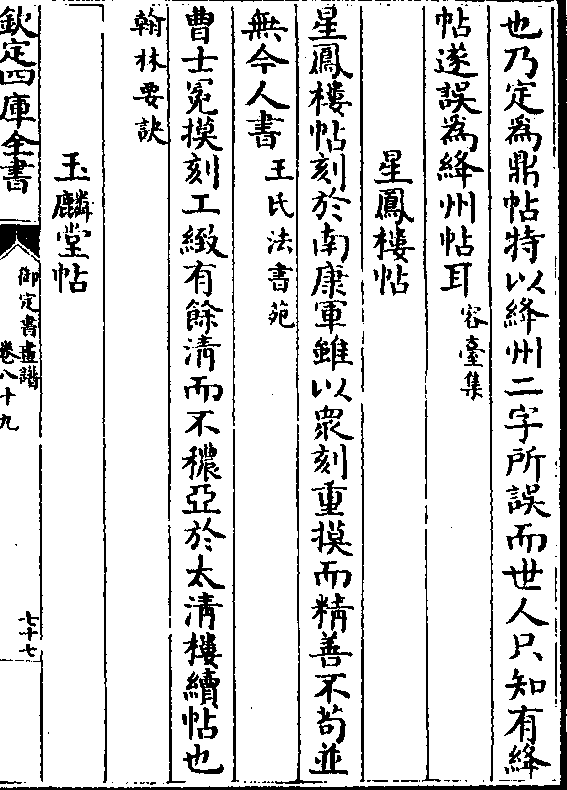 也乃定為鼎帖特以絳州二字所誤而世人只知有絳
帖遂誤為絳州帖耳容臺集
星鳳樓帖
星鳳樓帖刻於南康軍雖以衆刻重摸而精善不茍並
無今人書王氏法書苑
曹士冕摸刻工緻有餘清而不穠亞於太清樓續帖也
翰林要訣
玉麟堂帖
欽定四庫全書
御定書畫譜
卷八十九
七十七